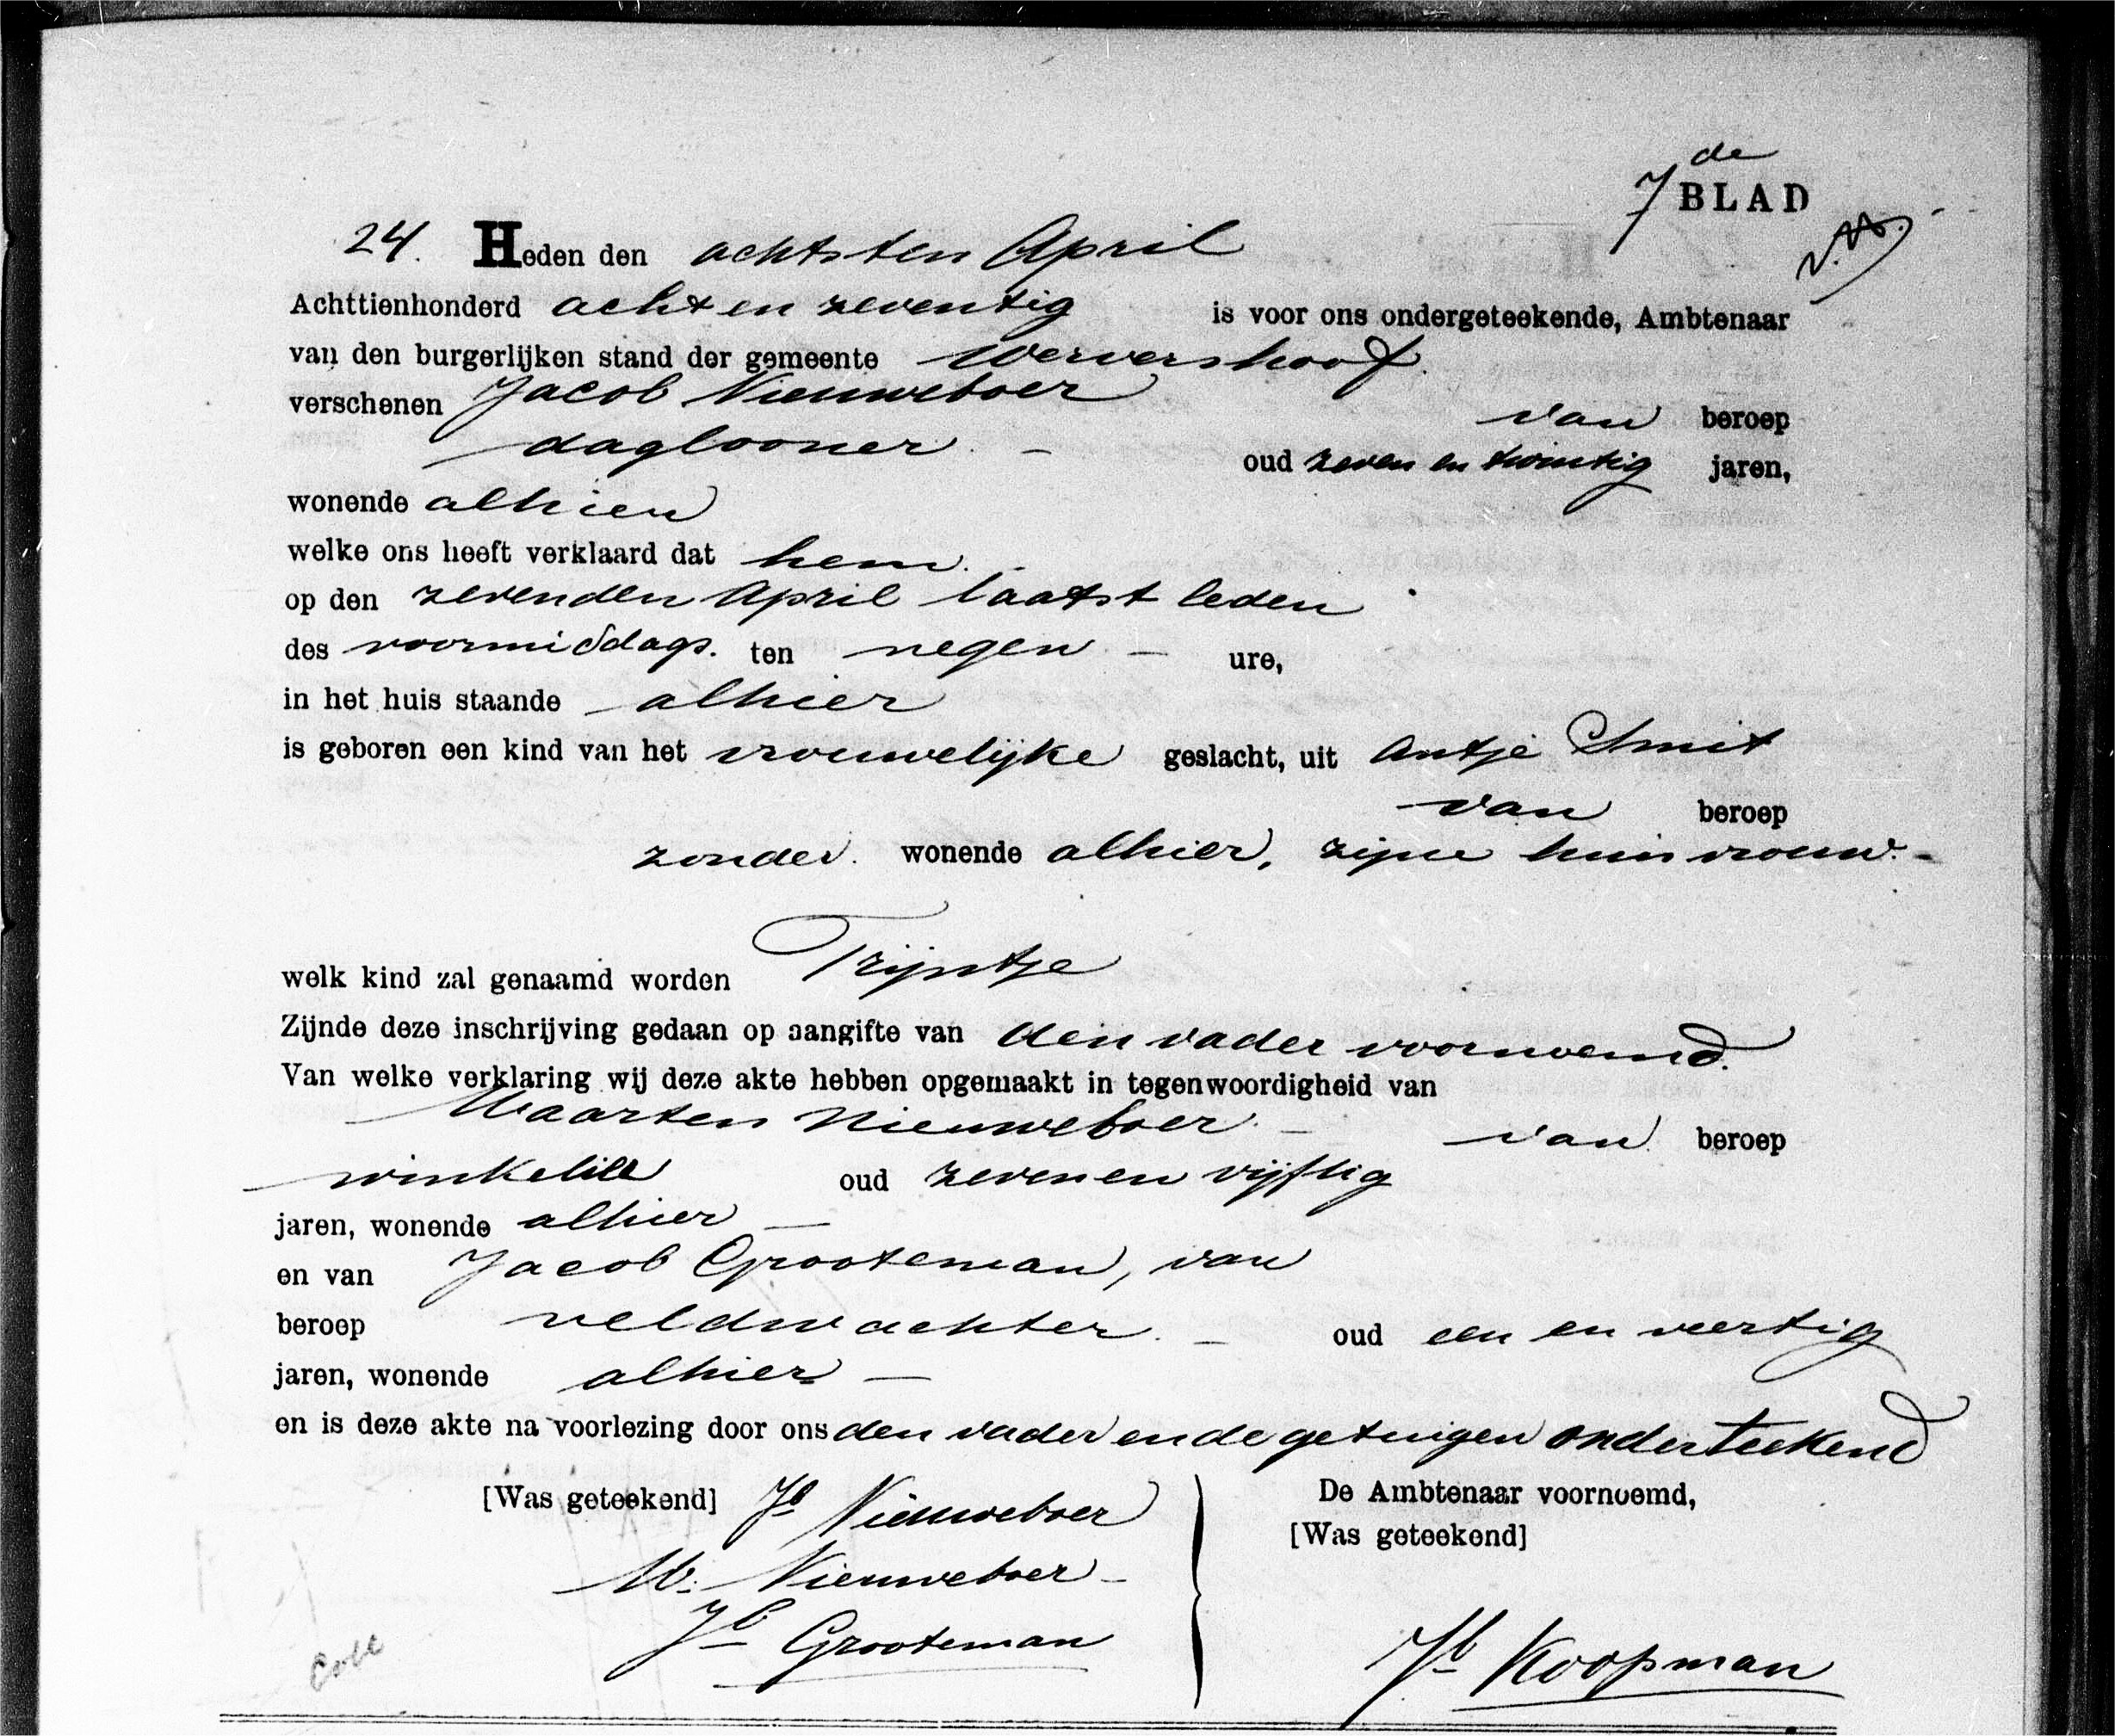 7de BLAD
24. Heden den achtsten April
Achttienhonderd acht en zeventig is voor ons ondergeteekende, Ambtenaar
van den burgerlijken stand der gemeente Wervershoof.
verschenen Jacob Nieuweboer van beroep
daglooner. - oud zeven en twintig jaren,
wonende alhier
welke ons heeft verklaard dat hem.
op den zevenden April laatst leden
des voormiddags. ten negen - ure,
in het huis staande alhier
is geboren een kind van het vrouwelijke geslacht, uit Antje Smit
van beroep
zonder. wonende alhier, zijne huisvrouw. -
welk kind zal genaamd worden Trijntje
Zijnde deze inschrijving gedaan op aangifte van den vader voornoemd.
Van welke verklaring wij deze akte hebben opgemaakt in tegenwoordigheid van
Maarten Nieuweboer. - van beroep
oud zeven en vijftig
jaren, wonende alhier -
en van Jacob Grooteman, van
beroep veldwachter. - oud een en veertig
jaren, wonende alhier -
en is deze akte na voorlezing door ons den vader en de getuigen onderteekend
[Was geteekend] Jb Nieuweboer
M. Nieuweboer -
Jb Grooteman
De Ambtenaar voornoemd,
[Was geteekend]
Jb Koopman